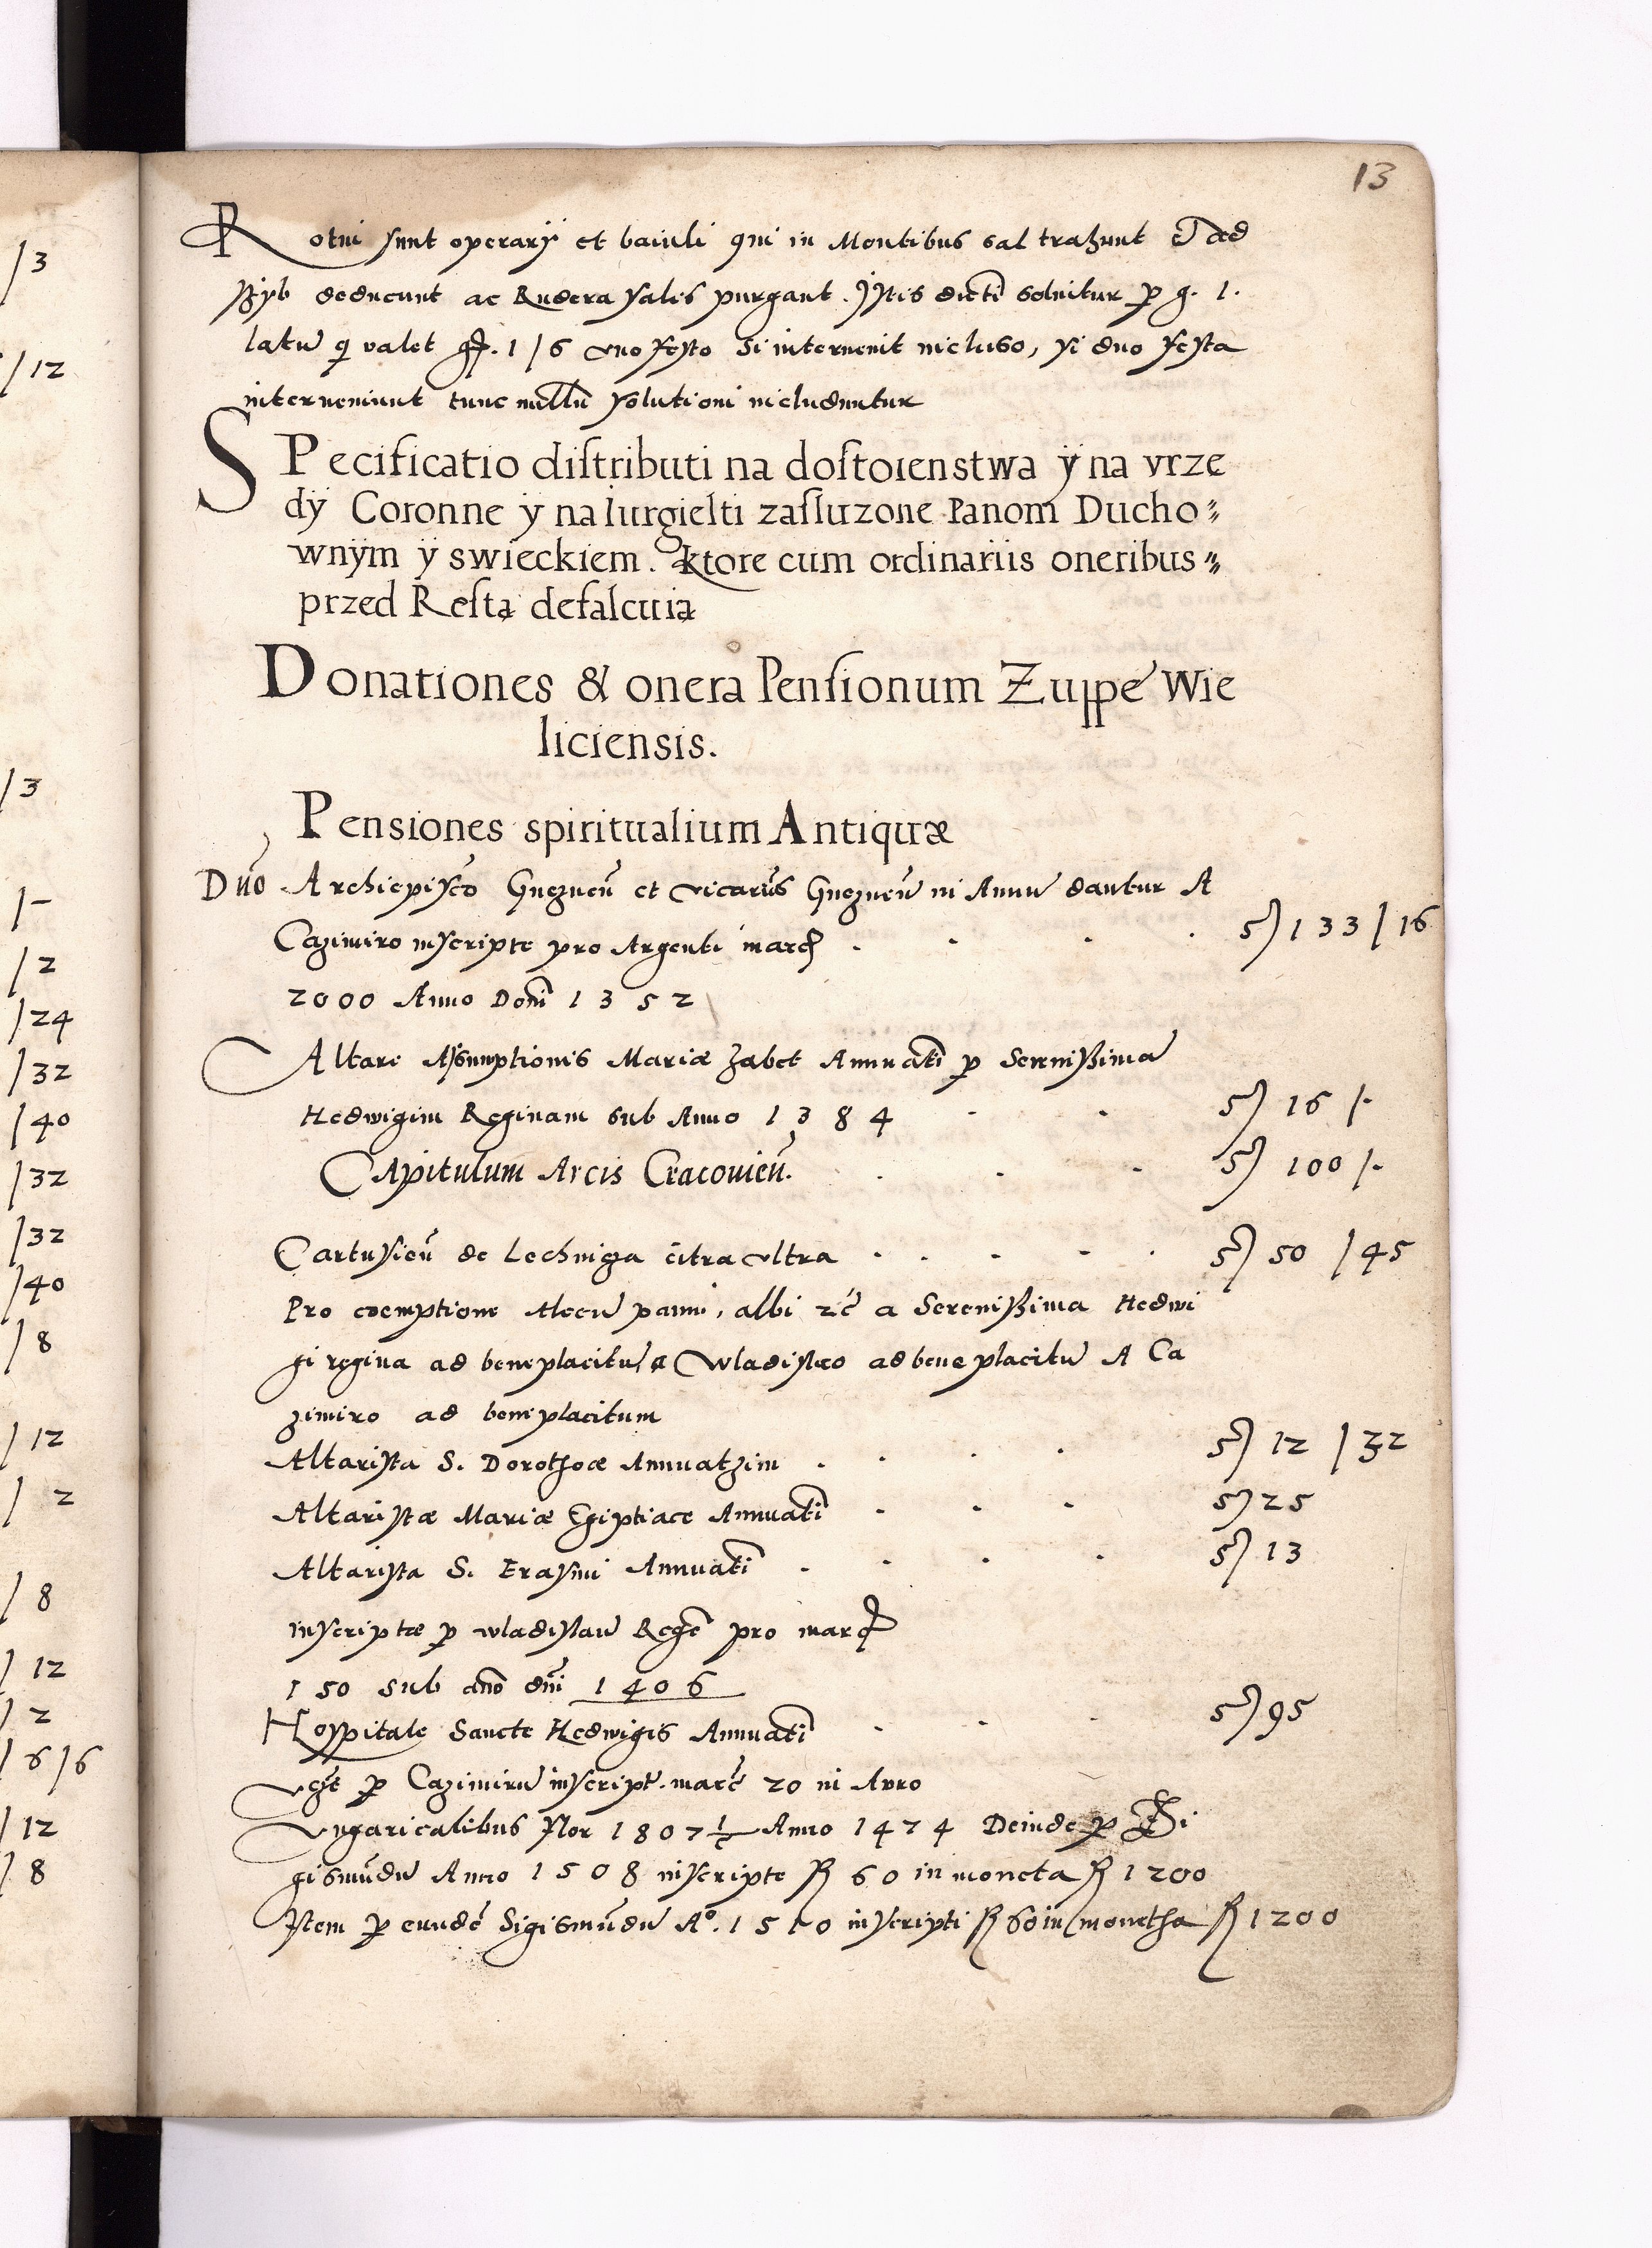 13
Rotni sunt operarÿ et baiuli qui in Montibus sal trahunt et ad
szÿb deducunt ac Rudera salis purgant. Istis dicti solvitur p g. 1.
latū q valet 1/6 uno festo si intervenit incluso, si duo festa
interveniunt tunc nullū solutioni includuntur
SPecificatio distributi na dostoienstwa ÿ na vrze
dÿ Coronne ÿ na Iurgielti zasluzone Panom Ducho⸗
wnÿm ÿ swieckiem. ktore cum ordinariis oneribus⸗
przed Restą defalcuią
Donationes & onera Pensionum Zuppe Wie
liciensis.
Pensiones spiritualium Antiquæ
Dno Archiepisco Gneznen̄ et vicarus Gneznen̄ in Annu dantur A
Cazimiro inscripte pro Argenti march 133 / 16
2000 Anno Dom̄ 1352
Altare Assumptionis Mariæ habet Annuati p Serenißima
Hedwigim Reginam sub Anno 1384 16 /-
CApitulum Arcis Cracovien̄. 100 /-
Cartusien̄ de Lechniza citra ultra 50 / 45
Pro coemptione Alecū panni, albi zc a Serenißima Hedwi
gi regina ad beneplacitū a Wladislao ad bene placitū A Ca
zimiro ad beneplacitum
Altarista S. Dorotheæ Annuatzim 12 / 32
Altaristæ Mariæ Egiptiace Annuati 25
Altarista S. Erasmi Annuati 13
inscriptæ p wladislau Rege pro march
150 sub ano dni 1406
Hospitale Sancte Hedwigis Annuati 95
p Cazimirū inscript. marc 20 in Auro
Ungaricalibus flor 1807 1/2 Anno 1474 Deinde p Si
gismūdū Anno 1508 inscripte 60 in moneta 1200
Item p eundē Sigismūdū Aº. 1510 inscripti 60 in monetha 1200
/3
/12
/3
/-
/2
/24
/32
/40
/32
/32
/40
/8
/12
/2
/8
/12
/2
/6/6
/12
/8